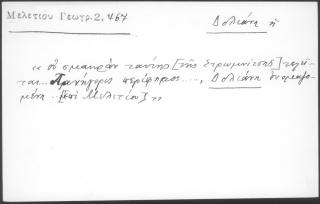 Μελετίου Γεωγρ. 2, 467
Δολιάνη ἡ
« οὐ μακρὰν ταύτης [τῆς Στρωμνίτσης] τελεῖ-
ται... Πανήγυρις περίφημος ...., Δολιάνη ὀνομαζο-
μένη ..[ἐπὶ Μελετίου] »